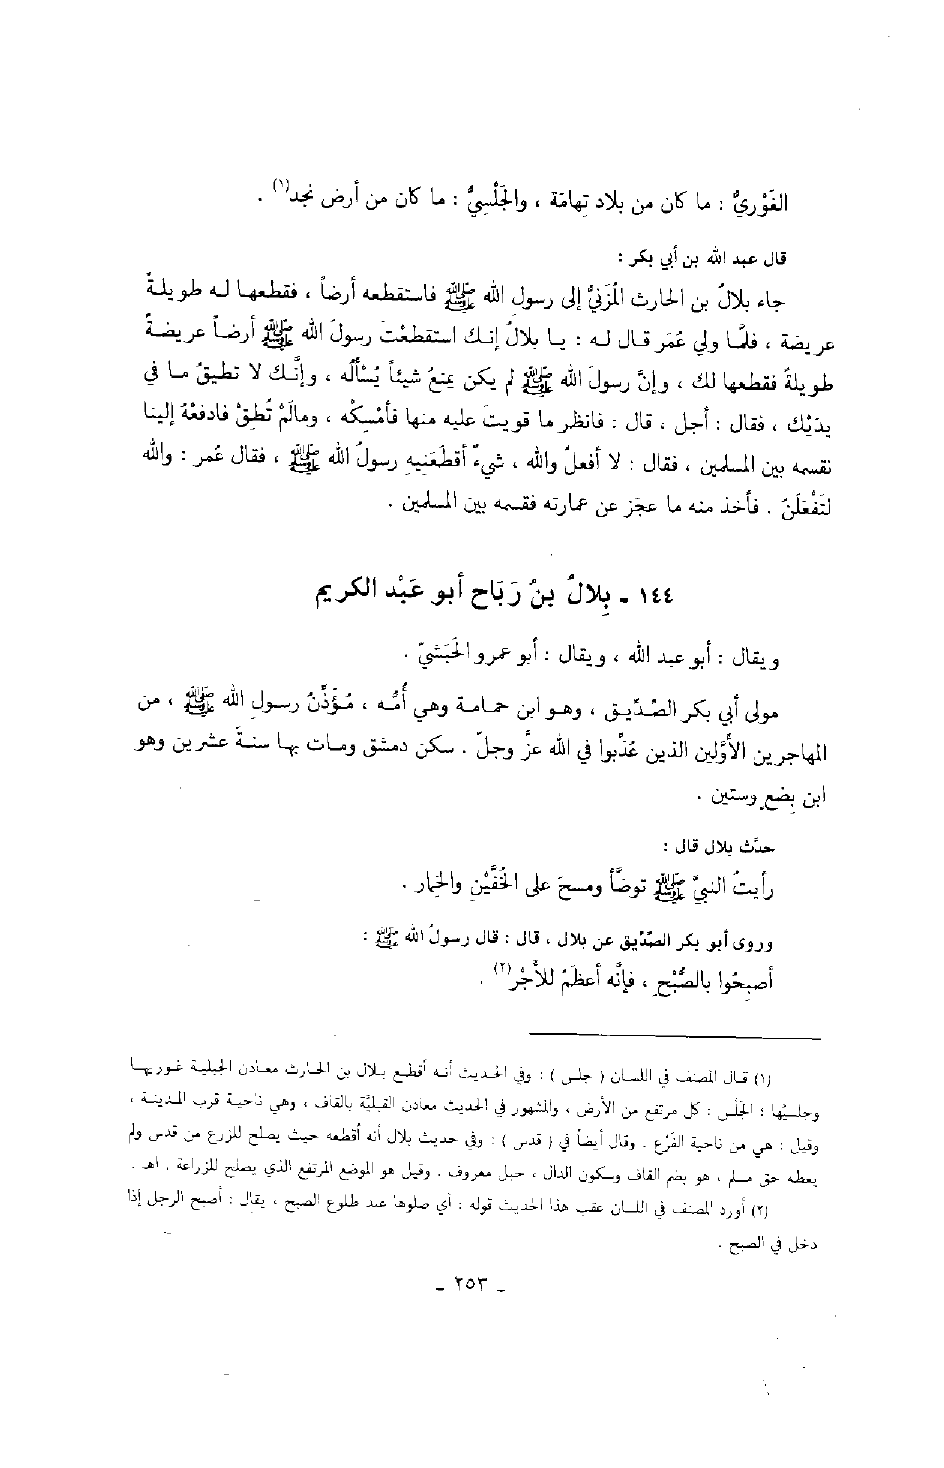 الغَوْريُّ : ما كان من بلاد تِهامَة ، والجَلْسِيُّ : ما كان من أرض نجد(١) .
قال عبد الله بن أبي بكر :
جاء بلالُ بن الحارث المُزَنيُّ إلى رسول الله ﷺ فاستقطعه أرضاً ، فقطعها له طويلةً
عريضة ، فلمَّا ولي عُمَر قال له : يا بلالُ إنك استقطعْتَ رسولَ الله ﷺ أرضاً عريضةً
طويلةً فقطعها لك ، وإنَّ رسولَ الله ﷺ لم يكن يمنعُ شيئاً يُسْأَلُه ، وإنَّك لا تطيقُ ما في
يدَيْك ، فقال : أجل ، قال : فانظر ما قويتَ عليه منها فأَمْسِكْه ، ومالَمْ تُطقْ فادفعْهُ إلينا
نقسمه بين المسلمين ، فقال : لا أفعلُ والله ، شيءٌ أقطَعَنِيهِ رسولُ الله ﷺ ، فقال عُمر : والله
لتَفْعَلَنَّ . فأخذ منه ما عجَز عن عمارته فقسمه بين المسلمين .
١٤٤ ـ بِلالُ بنُ رَبَاحِ أبو عَبْد الكريم
ويقال : أبو عبد الله ، ويقال : أبو عمرو الحَبَشيّ .
مولى أبي بكر الصِّدِّيق ، وهو ابن حمامة وهي أُمُّه ، مُؤَذِّنُ رسولِ الله ﷺ ، من
المهاجرين الأوَّلين الذين عُذِّبوا في الله عزَّ وجلّ . سكن دمشق ومات بها سنةَ عشرين وهو
ابن بِضعٍ وستين .
حدَّث بلال قال :
رأيتُ النبيَّ ﷺ توضَّأ ومسحَ على الخُفَّيْنِ والخِمار .
وروى أبو بكر الصِّدّيق عن بلال ، قال : قال رسولُ الله ﷺ :
أصبِحُوا بالصُّبْحِ ، فإنَّه أعظَمُ للأَجْر(٢) .
(١) قال المصنف في اللسان ( جلس ) : وفي الحديث أنه أقطع بلال بن الحارث معادن الجبلية غوريها
وجلسيَّها ؛ الجَلْس : كل مرتفع من الأرض ، والمشهور في الحديث معادن القبليَّة بالقاف ، وهي ناحية قرب المدينة ،
وقيل : هي من ناحية الفُرْع . وقال أيضاً في ( قدس ) : وفي حديث بلال أنه أقطعه حيث يصلح للزرع من قدس ولم
يعطه حق مسلم ، هو بضم القاف وسكون الدال ، جبل معروف . وقيل هو الموضع المرتفع الذي يصلح للزراعة . اهـ .
(٢) أورد المصنف في اللسان عقب هذا الحديث قوله : أي صلوها عند طلوع الصبح ، يقال : أصبح الرجل إذا
دخل في الصبح .
ـ ٢٥٣ ـ